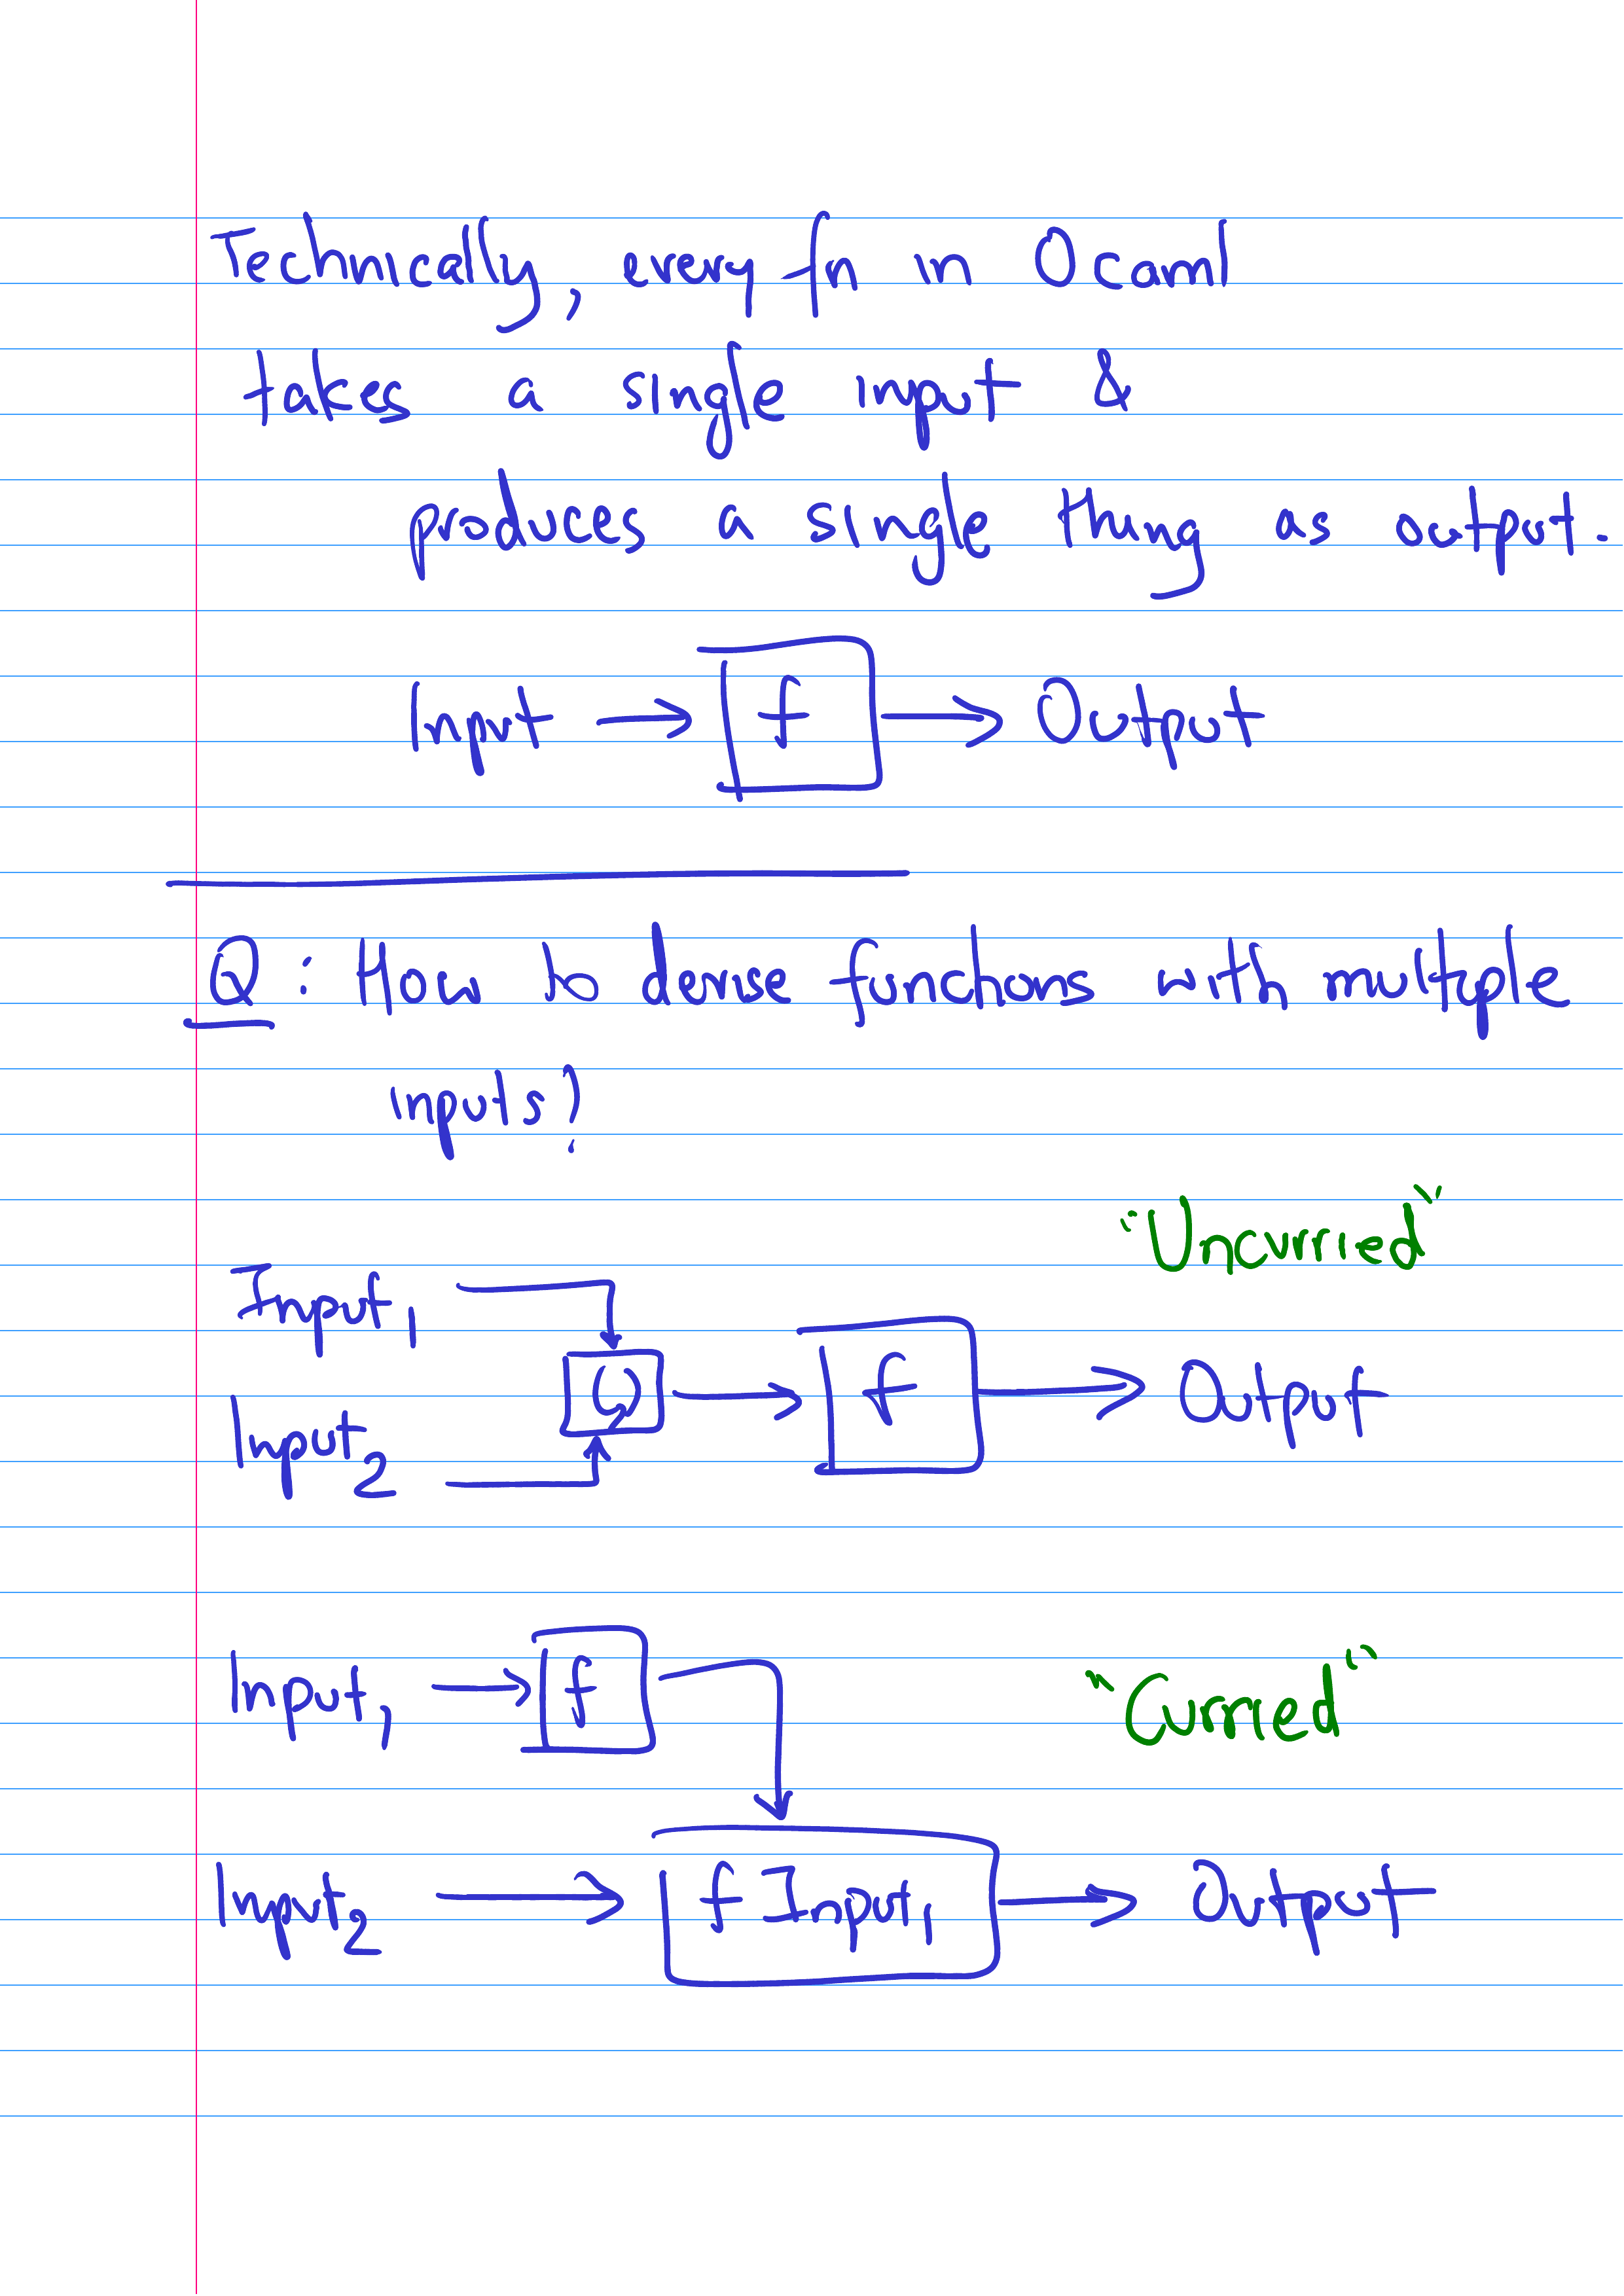 Technically, every fn in Ocaml
takes a single input &
produces a single thing as output.
Input → f → Output
Q : How to devise functions with multiple
inputs?
"Uncurried"
Input₁
( , ) → f → Output
Input₂
Input₁ → f
"Curried"
Input₂ → f Input₁ → Output